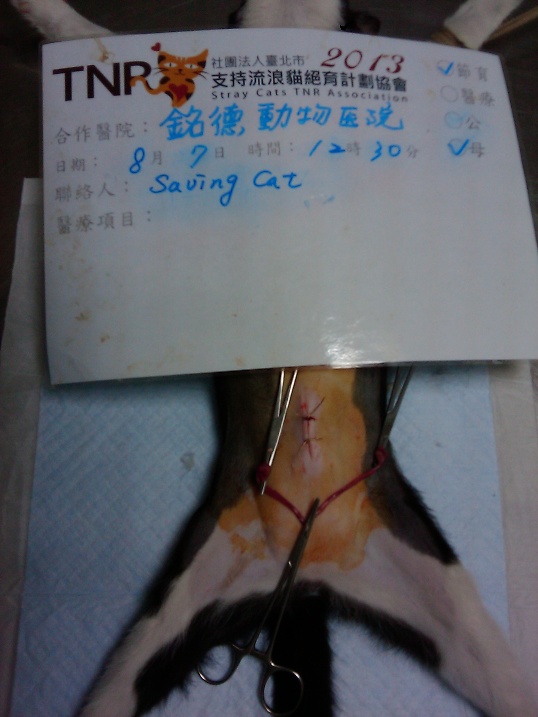 TNR 社團法人臺北市 2013
支持流浪貓絕育計劃協會
Stray Cats TNR Association
節育
醫療
公
母
合作醫院：銘德動物医院
日期：8月7日 時間：12時30分
聯絡人：Saving Cat
醫療項目：